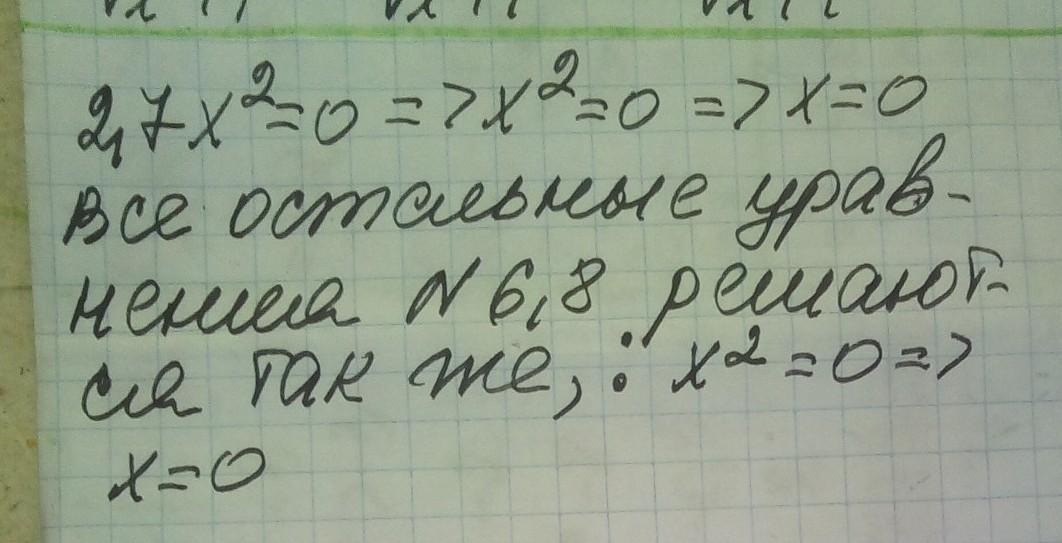 2,7x²=0 => x²=0 => x=0
все остальные урав-
нения N6,8 решают-
ся так же, : x²=0 =>
x=0